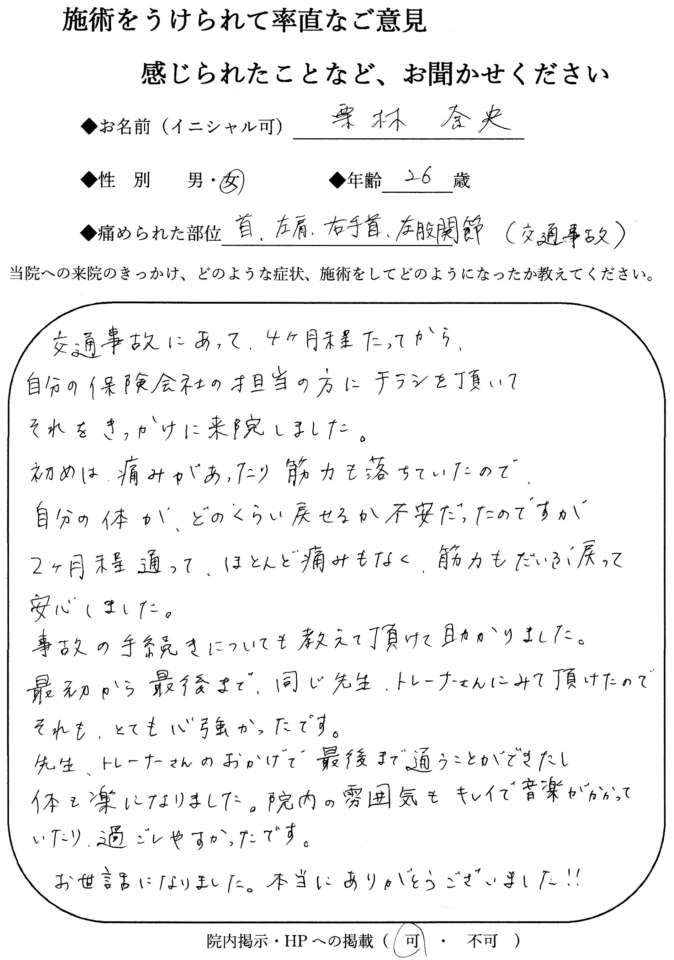 施術をうけられて率直なご意見
感じられたことなど、お聞かせください
◆お名前（イニシャル可） 栗林 奈央
◆性 別 男・女 ◆年齢 26 歳
◆痛められた部位 首、左肩、右手首、左股関節 (交通事故)
当院への来院のきっかけ、どのような症状、施術をしてどのようになったか教えてください。
交通事故にあって、4ヶ月程たってから、
自分の保険会社の担当の方にチラシを頂いて
それをきっかけに来院しました。
初めは、痛みがあったり筋力も落ちていたので、
自分の体が、どのくらい戻せるか不安だったのですが
2ヶ月程通って、ほとんど痛みもなく、筋力もだいぶ戻って
安心しました。
事故の手続きについても教えて頂けて助かりました。
最初から最後まで、同じ先生、トレーナーさんにみて頂けたので
それも、とても心強かったです。
先生、トレーナーさんのおかげで最後まで通うことができたし
体も楽になりました。院内の雰囲気もキレイで音楽がかかって
いたり、過ごしやすかったです。
お世話になりました。本当にありがとうございました!!
院内掲示・HPへの掲載（ 可 ・ 不可 ）